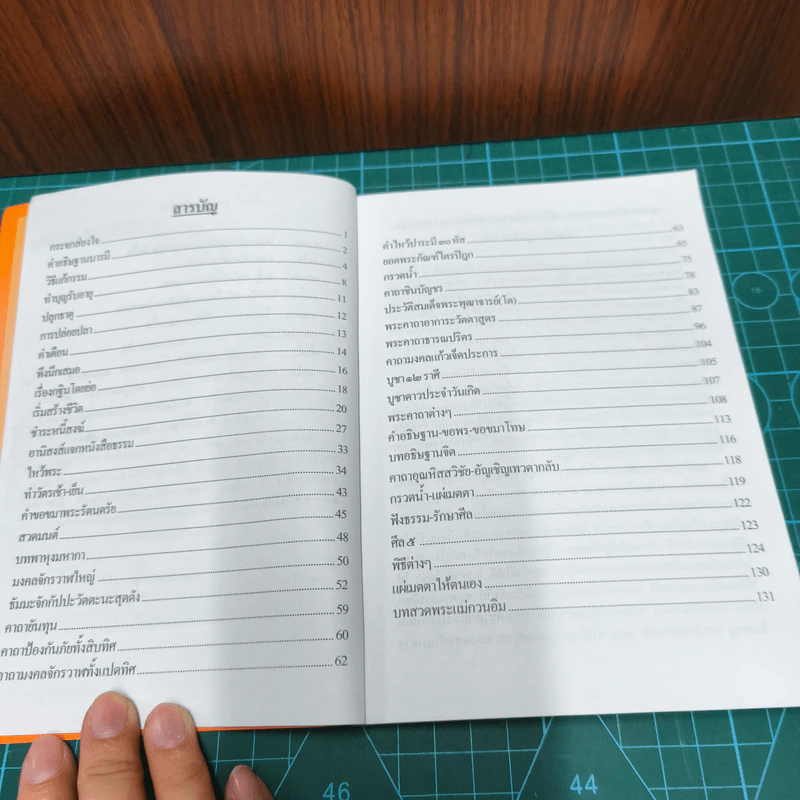 สารบัญ
กระจกส่องใจ 1
คำอธิษฐานบารมี 2
วิธีแก้กรรม 4
ทำบุญรับอายุ 8
ปลุกธาตุ 11
การปล่อยปลา 12
คำเตือน 13
พึงนึกเสมอ 14
เรื่องกฐินโดยย่อ 16
เริ่มสร้างชีวิต 18
ชำระหนี้สงฆ์ 20
อานิสงส์แจกหนังสือธรรม 27
ไหว้พระ 33
ทำวัตรเช้า-เย็น 34
คำขอขมาพระรัตนตรัย 43
สวดมนต์ 45
บทพาหุงมหากา 48
มงคลจักรวาฬใหญ่ 50
ธัมมะจักกัปปะวัตตะนะสุตตัง 52
คาถายันทุน 59
คาถาป้องกันภัยทั้งสิบทิศ 60
คาถามงคลจักรวาฬทั้งแปดทิศ 62
คำไหว้บารมี ๓๐ ทัส 63
ยอดพระกัณฑ์ไตรปิฎก 65
กรวดน้ำ 75
คาถาชินบัญชร 78
ประวัติสมเด็จพระพุฒาจารย์(โต) 83
พระคาถาอาการะวัตตาสูตร 87
พระคาถาธารณปริตร 96
คาถามงคลแก้วเจ็ดประการ 104
บูชา ๑๒ ราศี 105
บูชาดาวประจำวันเกิด 107
พระคาถาต่างๆ 108
คำอธิษฐาน-ขอพร-ขอขมาโทษ 113
บทอธิษฐานจิต 116
คาถาอุณหิสสวิชัย-อัญเชิญเทวดากลับ 118
กรวดน้ำ-แผ่เมตตา 119
ฟังธรรม-รักษาศีล 122
ศีล ๕ 123
พิธีต่างๆ 124
แผ่เมตตาให้ตนเอง 130
บทสวดพระแม่กวนอิม 131
46
44